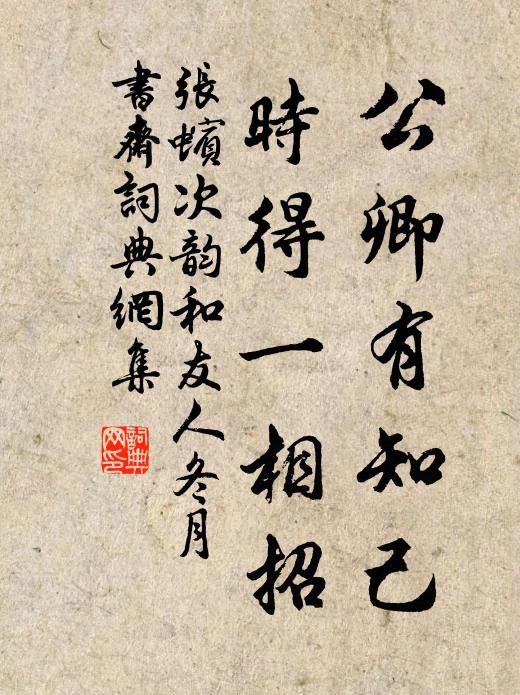 公卿有知己
時得一相招
張蠙次韵和友人冬月
書齋詞典網集
詞典网印